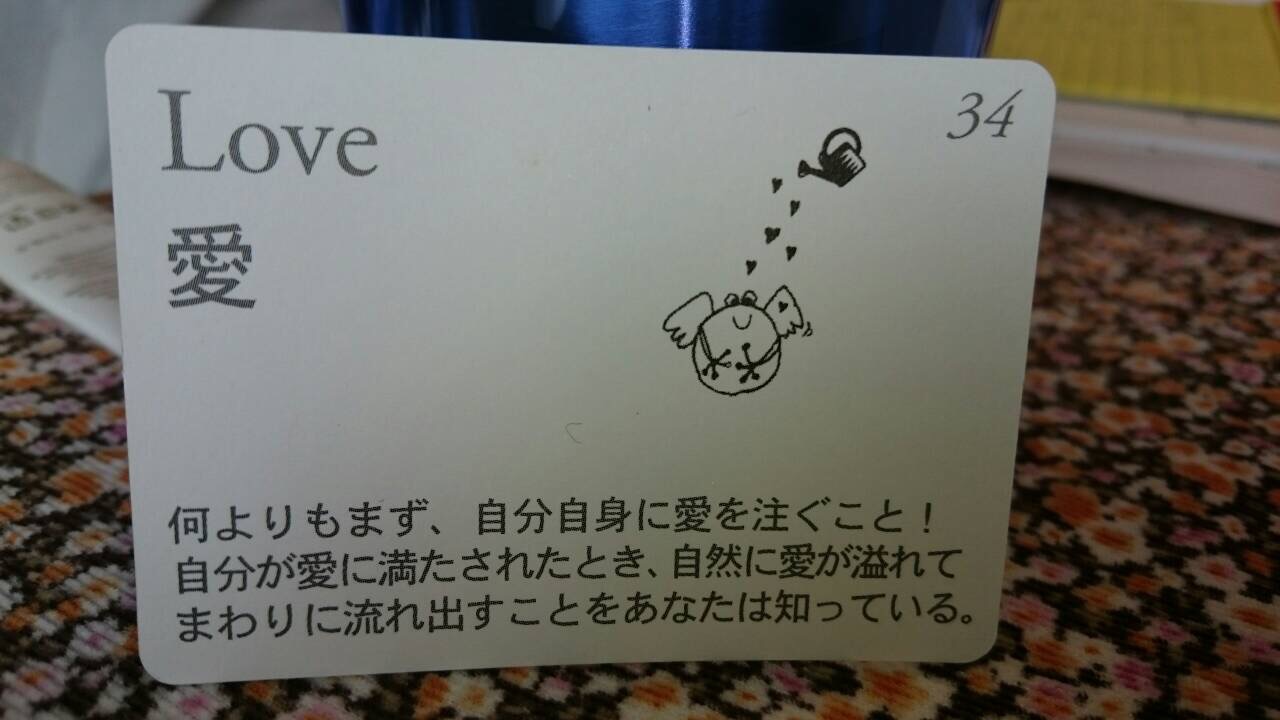 Love
34
愛
何よりもまず、自分自身に愛を注ぐこと！
自分が愛に満たされたとき、自然に愛が溢れて
まわりに流れ出すことをあなたは知っている。